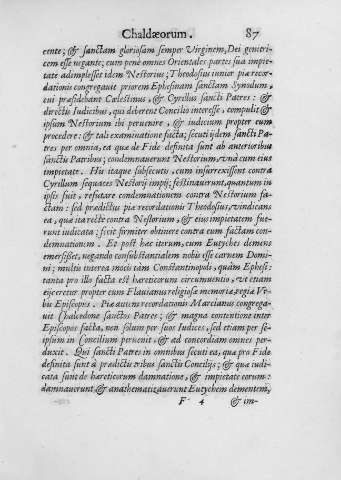 Chaldæorum. 87
cente; & sanctam gloriosam semper Virginem, Dei genitri-
cem esse negante; cum penè omnes Orientales partes sua impie-
tate adimplesset idem Nestorius; Theodosius iunior piæ recor-
dationis congregauit priorem Ephesinam sanctam Synodum,
cui præsidebant Cælestinus, & Cyrillus sancti Patres: &
directis Iudicibus, qui deberent Concilio interesse, compulit &
ipsum Nestorium ibi peruenire, & iudicium propter eum
procedere: & tali examinatione facta; secuti ijdem sancti Pa-
tres per omnia, ea quæ de Fide definita sunt ab anterioribus
sanctis Patribus; condemnauerunt Nestorium, vnà cum eius
impietate. Hu itaque subsecutis, cum insurrexissent contra
Cyrillum sequaces Nestorij impij; festinauerunt, quantum in
ipsis fuit, refutare condemnationem contra Nestorium fa-
ctam: sed prædictus piæ recordationis Theodosius, vindicans
ea, quæ ita rectè contra Nestorium, & eius impietatem fue-
runt iudicata: fecit firmiter obtinere contra eum factam con-
demnationem. Et post hæc iterum, cum Eutyches demens
emersisset, negando consubstantialem nobis esse carnem Domi-
ni; multis interea motis tam Constantinopoli, quàm Ephesi:
tanta pro illo facta est hæreticorum circumuentio, vt etiam
eijceretur propter eum Flauianus religiosæ memoriæ regiæ Vr-
bis Episcopus. Piæ autem recordationis Marcianus congrega-
uit Chalcedone sanctos Patres; & magna contentione inter
Episcopos facta, non solùm per suos Iudices, sed etiam per se-
ipsum in Concilium peruenit, & ad concordiam omnes per-
duxit. Qui sancti Patres in omnibus secuti ea, quæ pro Fide
definita sunt à prædictis tribus sanctis Concilijs; & quæ iudi-
cata sunt de hæreticorum damnatione, & impietate eorum:
damnauerunt & anathematizauerunt Eutychem dementem,
F 4 & im-